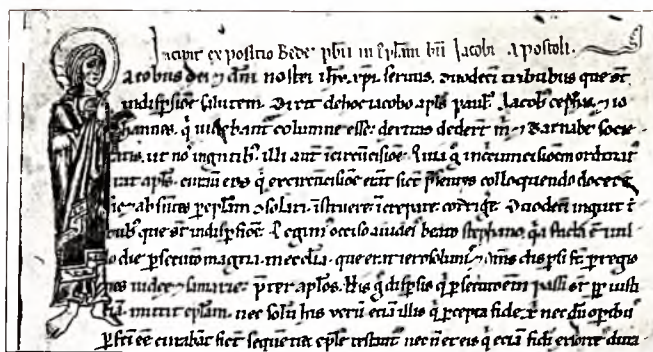 Incipit expositio Bede pbri in eplam bti Jacobi Apostoli.
acobus dei & dni nostri ihu xpi seruus. duodeci tribubus que st
in dispsioe salutem. Dixit de hoc iacobo apls paul'. Jacob' cephas & io
hannes. q uidebant columne esse: dextras dedert m & Barnabe socie
tatis. ut nos in gentib'. illi aut i circucisioe. Quia g in circumcisiõem ordinat'
erat apls. eos q ex circucisioe erat sicut psentes colloquendo docere
sic & absentes p eplam solari. istruere icrepare. corrige. Duodeci inquit t
ribub' que st in dispsioe. Legim' occiso a iudeis beato stephano. qa facta e in il
lo die psecutio magna in ecclia. que erat ierosolimis. & oms dispsi st p regio
nes iudee & samarie. preter aplos. His g dispsis q psecutoem passi st pp iusti
tia. mittit eplam. nec solu his ueru etia illis q pcepta fide xpi nec du opib'
pfecti ee curabat sicut sequentia eple testant. nec n & eis q etia fidei exortes dura